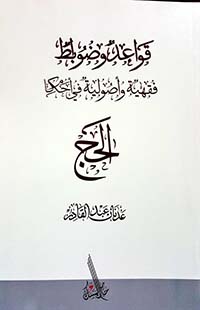 قواعد وضوابط
فقهية وأصولية في أحكام
الحج
عدنان عبد القادر